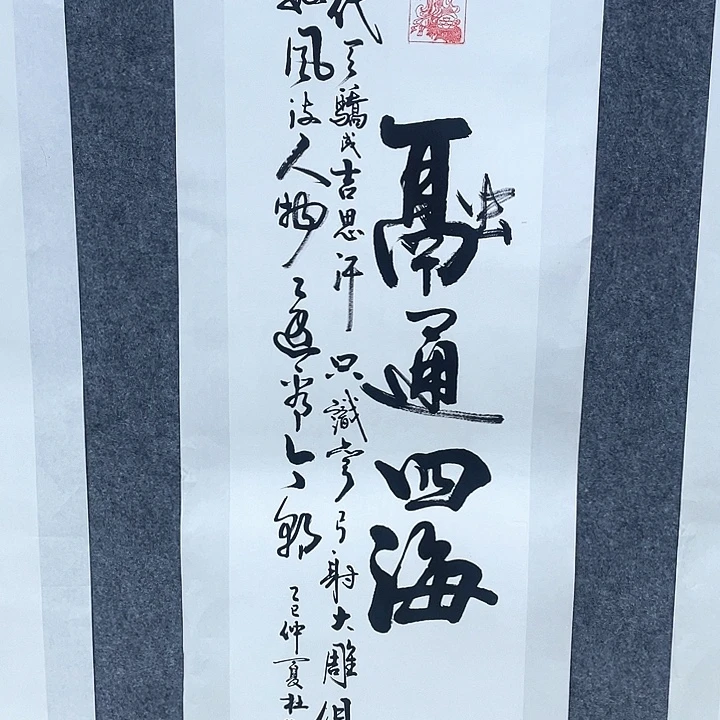 融通四海
代天驕成吉思汗只識彎弓射大雕俱
風流人物還看今朝
乙巳仲夏杜